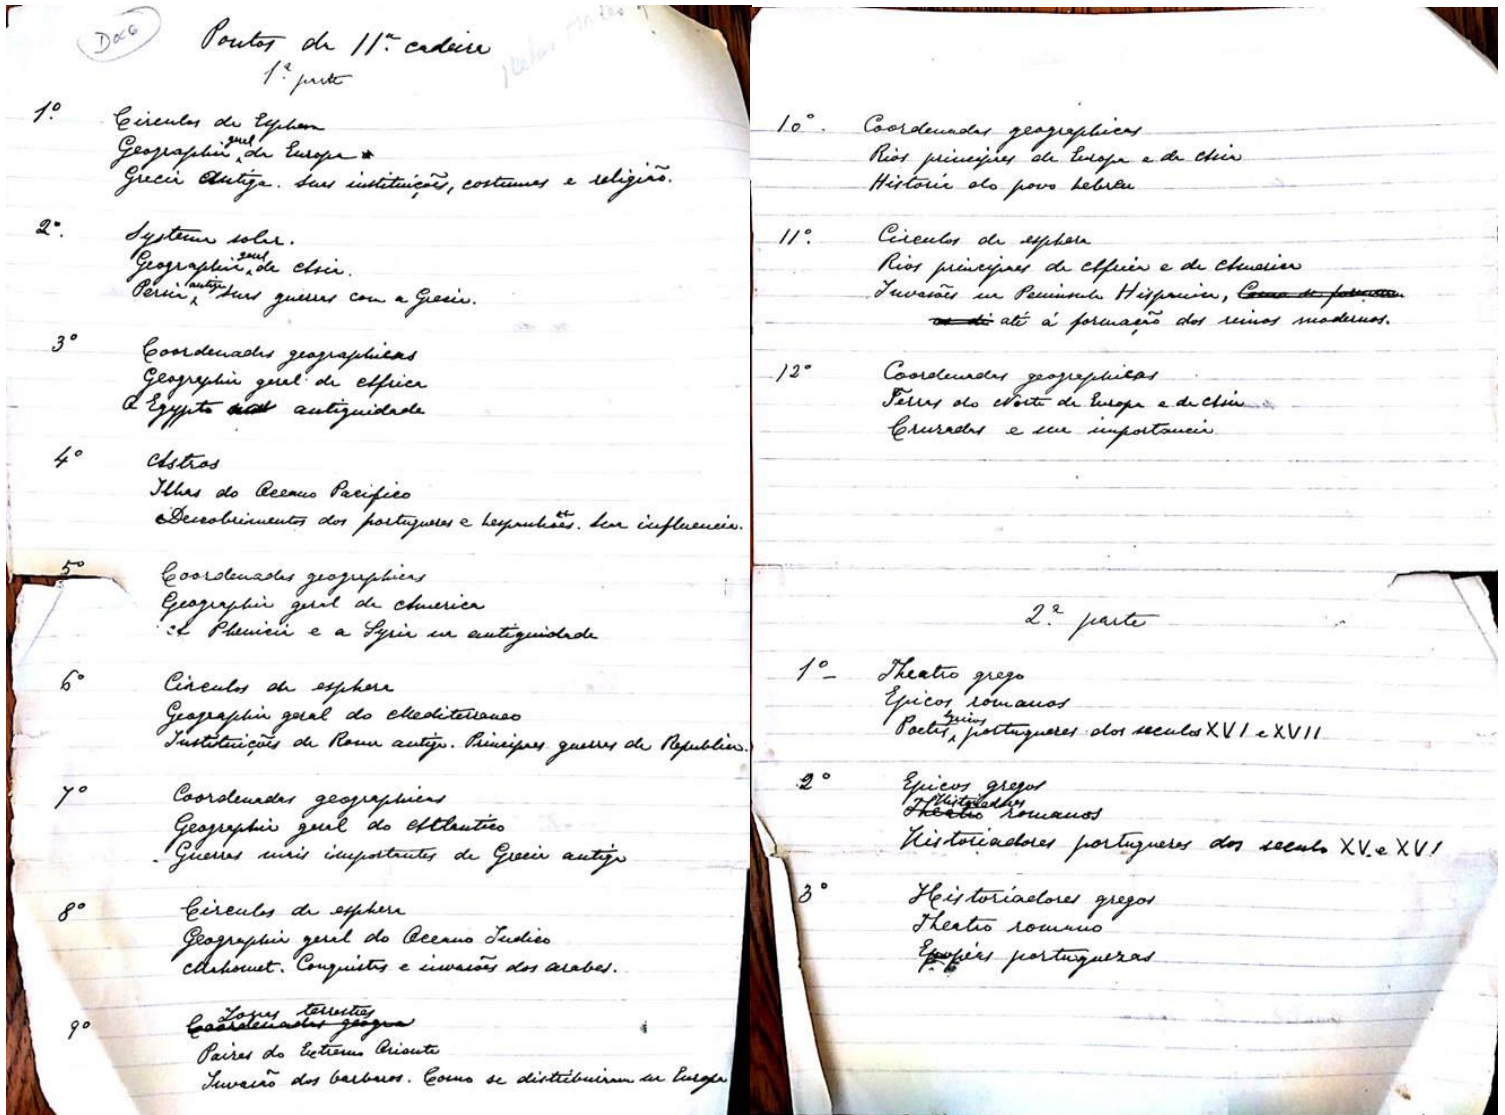 Doc 6
Pontos da 11ª cadeira
1ª parte
1º Circulos da Esphera
Geographia geral da Europa
Grecia antiga. Suas instituições, costumes e religião.
2º. Systema solar.
Geographia geral da Asia.
Persia antiga Suas guerras com a Grecia.
3º Coordenadas geographicas
Geographia geral da Africa
O Egypto na antiguidade
4º Astros
Ilhas do Oceano Pacifico
Descobrimentos dos portugueses e hespanhoes. Sua influencia.
5º Coordenadas geographicas
Geographia geral da America
A Phenicia e a Syria na antiguidade
6º Circulos da esphera
Geographia geral do Mediterraneo
Instituições de Roma antiga. Principaes guerras da Republica.
7º Coordenadas geographicas
Geographia geral do Atlantico
Guerras mais importantes da Grecia antiga
8º Circulos da esphera
Geographia geral do Oceano Indico
Mahomet. Conquistas e invasões dos arabes.
9º Zonas terrestres
Coordenadas geogra
Paizes do Extremo Oriente
Invasão dos barbaros. Como se distribuiram na Europa
10º. Coordenadas geographicas
Rios principaes da Europa e da Asia
Historia do povo hebreu
11º. Circulos da esphera
Rios principaes da Africa e da America
Invasões na Peninsula Hispanica, Como se formaram
até á formação dos reinos modernos.
12º Coordenadas geographicas
Terras do Norte da Europa e da Asia
Cruzadas e sua importancia
2ª parte
1º - Theatro grego
Epicos romanos
Poetas lyricos portugueses dos seculos XVI e XVII
2º Epicos gregos
Historiadores
Theatro romanos
Historiadores portugueses dos seculo XV e XVI
3º Historiadores gregos
Theatro romano
Epopéas portuguezas